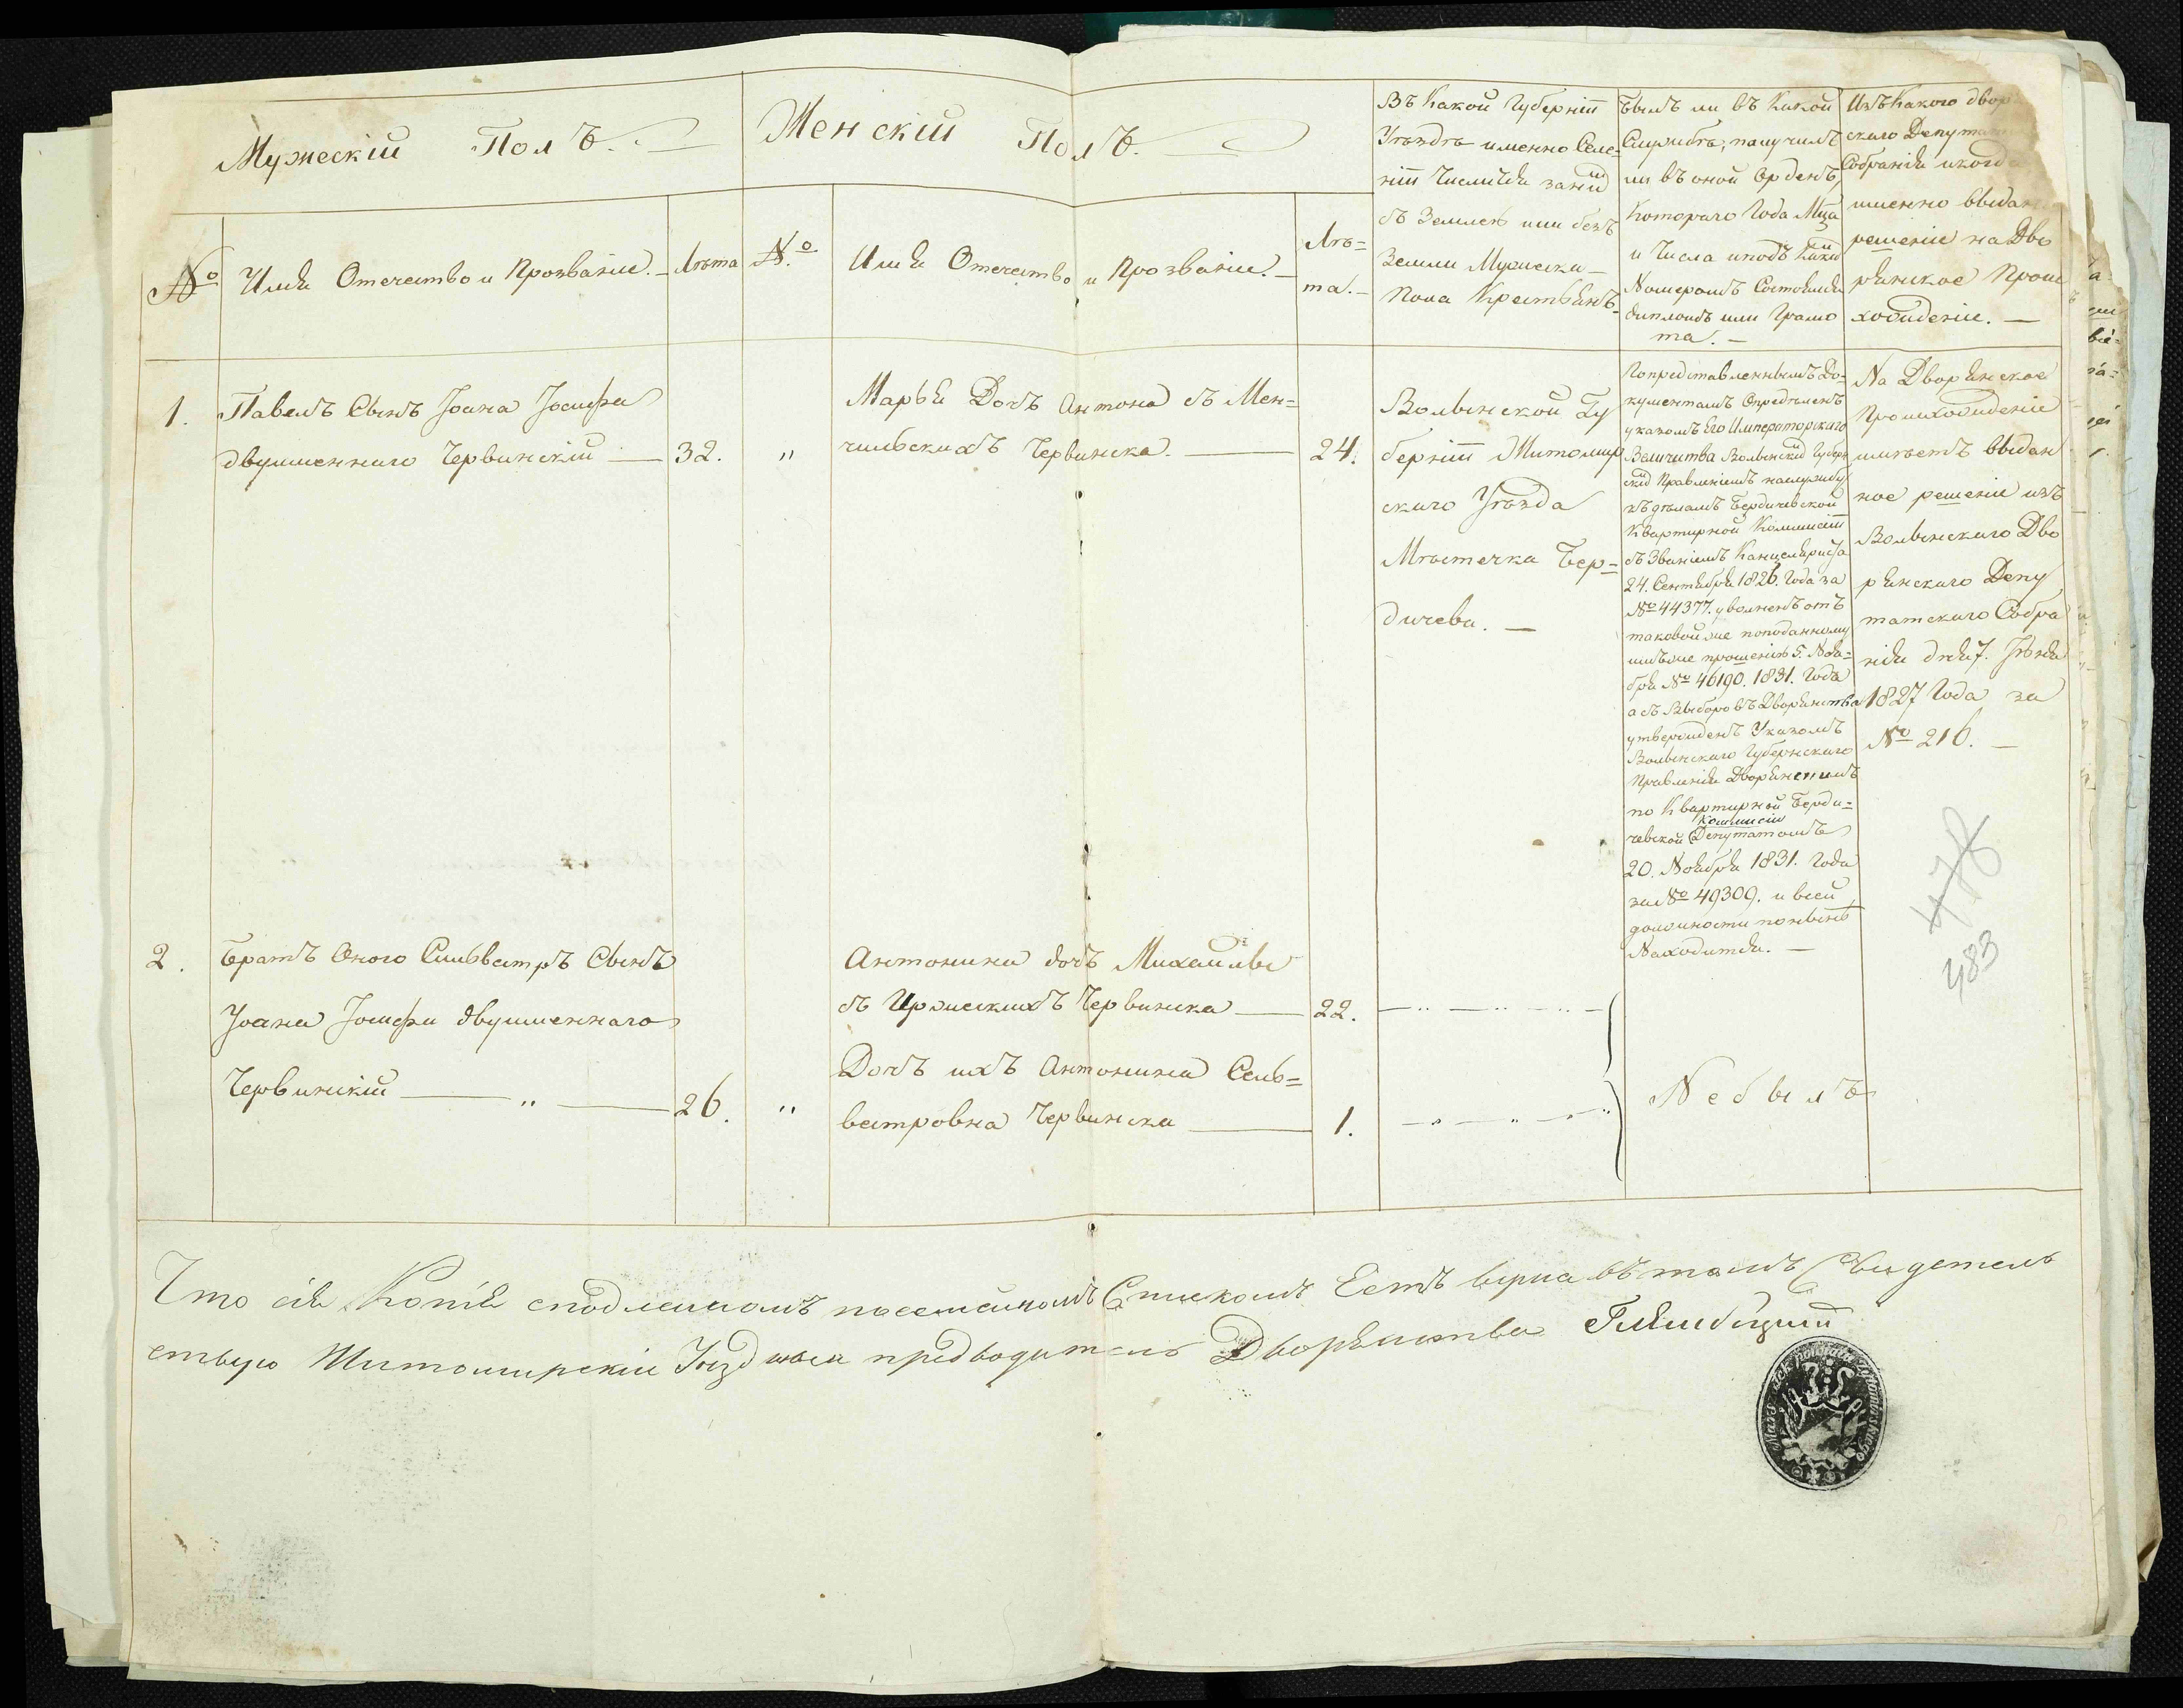 Мужескій Полъ.
Женскій Полъ.
Въ Какой Губерніи
Уѣздѣ именно Селе=
ніи Числится за ним
съ Землею или безъ
Земли Мужеска
Пола Крестьянъ.
Былъ ли въ Какой
Службѣ, получилъ
ли въ оной Орденъ,
Котораго Года Мца
и Числа и подъ Каким
Номеромъ Состоялся
дипломъ или Грамо
та.
Изъ Какого двор
скаго Депутат
Собранія и когда
именно выдан
решеніе на Дво
рянское Проис
хождение.
№
Имя Отечество и Прозваніе.
Лѣта
№
Имя Отечество и Прозваніе.
Лѣ=
та.
1.
Павелъ Сынъ Іоана Іосифа
двуименнаго Червинскій
32.
"
Марья Дочь Антона съ Мен=
чильскихъ Червинска.
24.
Волынской Гу
берніи Житомир
скаго Уѣзда
Мѣстечка Бер=
дичева.
По представленнымъ До=
кументамъ Определенъ
указомъ Его Императорскаго
Величества Волынским Губерн
ским Правленіемъ на службу
къ дѣламъ Бердичевской
Квартирной Коммисіи
съ Званіемъ Канцеляриста
24. Сентября 1826. Года за
№ 44377. уволненъ отъ
таковой же по поданному
имъ же прошенію 5. Ноя=
бря № 46190. 1831. Года
а съ Выборовъ Дворянства
утвержденъ Указомъ
Волынскаго Губернскаго
Правленія Дворянскимъ
по Квартирной Берди=
Коммисіи
чевской Депутатомъ
20. Ноября 1831. Года
за № 49309. и всей
должности понынѣ
Находится.
На Дворянское
Происхожденіе
имѣетъ выдан
ное решеніе изъ
Волынскаго Дво
рянскаго Депу
татскаго Собра
нія дня 7. Іюня
1827 Года за
№ 216.
478
483
2.
Братъ Оного Сильвестръ Сынъ
Іоана Іосифа двуименнаго
Червинскій
26.
"
Антонина дочь Михайлы
съ Иржискихъ Червинска
22.
Дочь ихъ Антонина Силь=
вестровна Червинска
1.
Небылъ
Что сія Копія с подлиннымъ посемейнымъ Спискомъ Есть вѣрна въ томъ Свидетель
ствую Житомирскій Уѣздный предводитель Дворянства